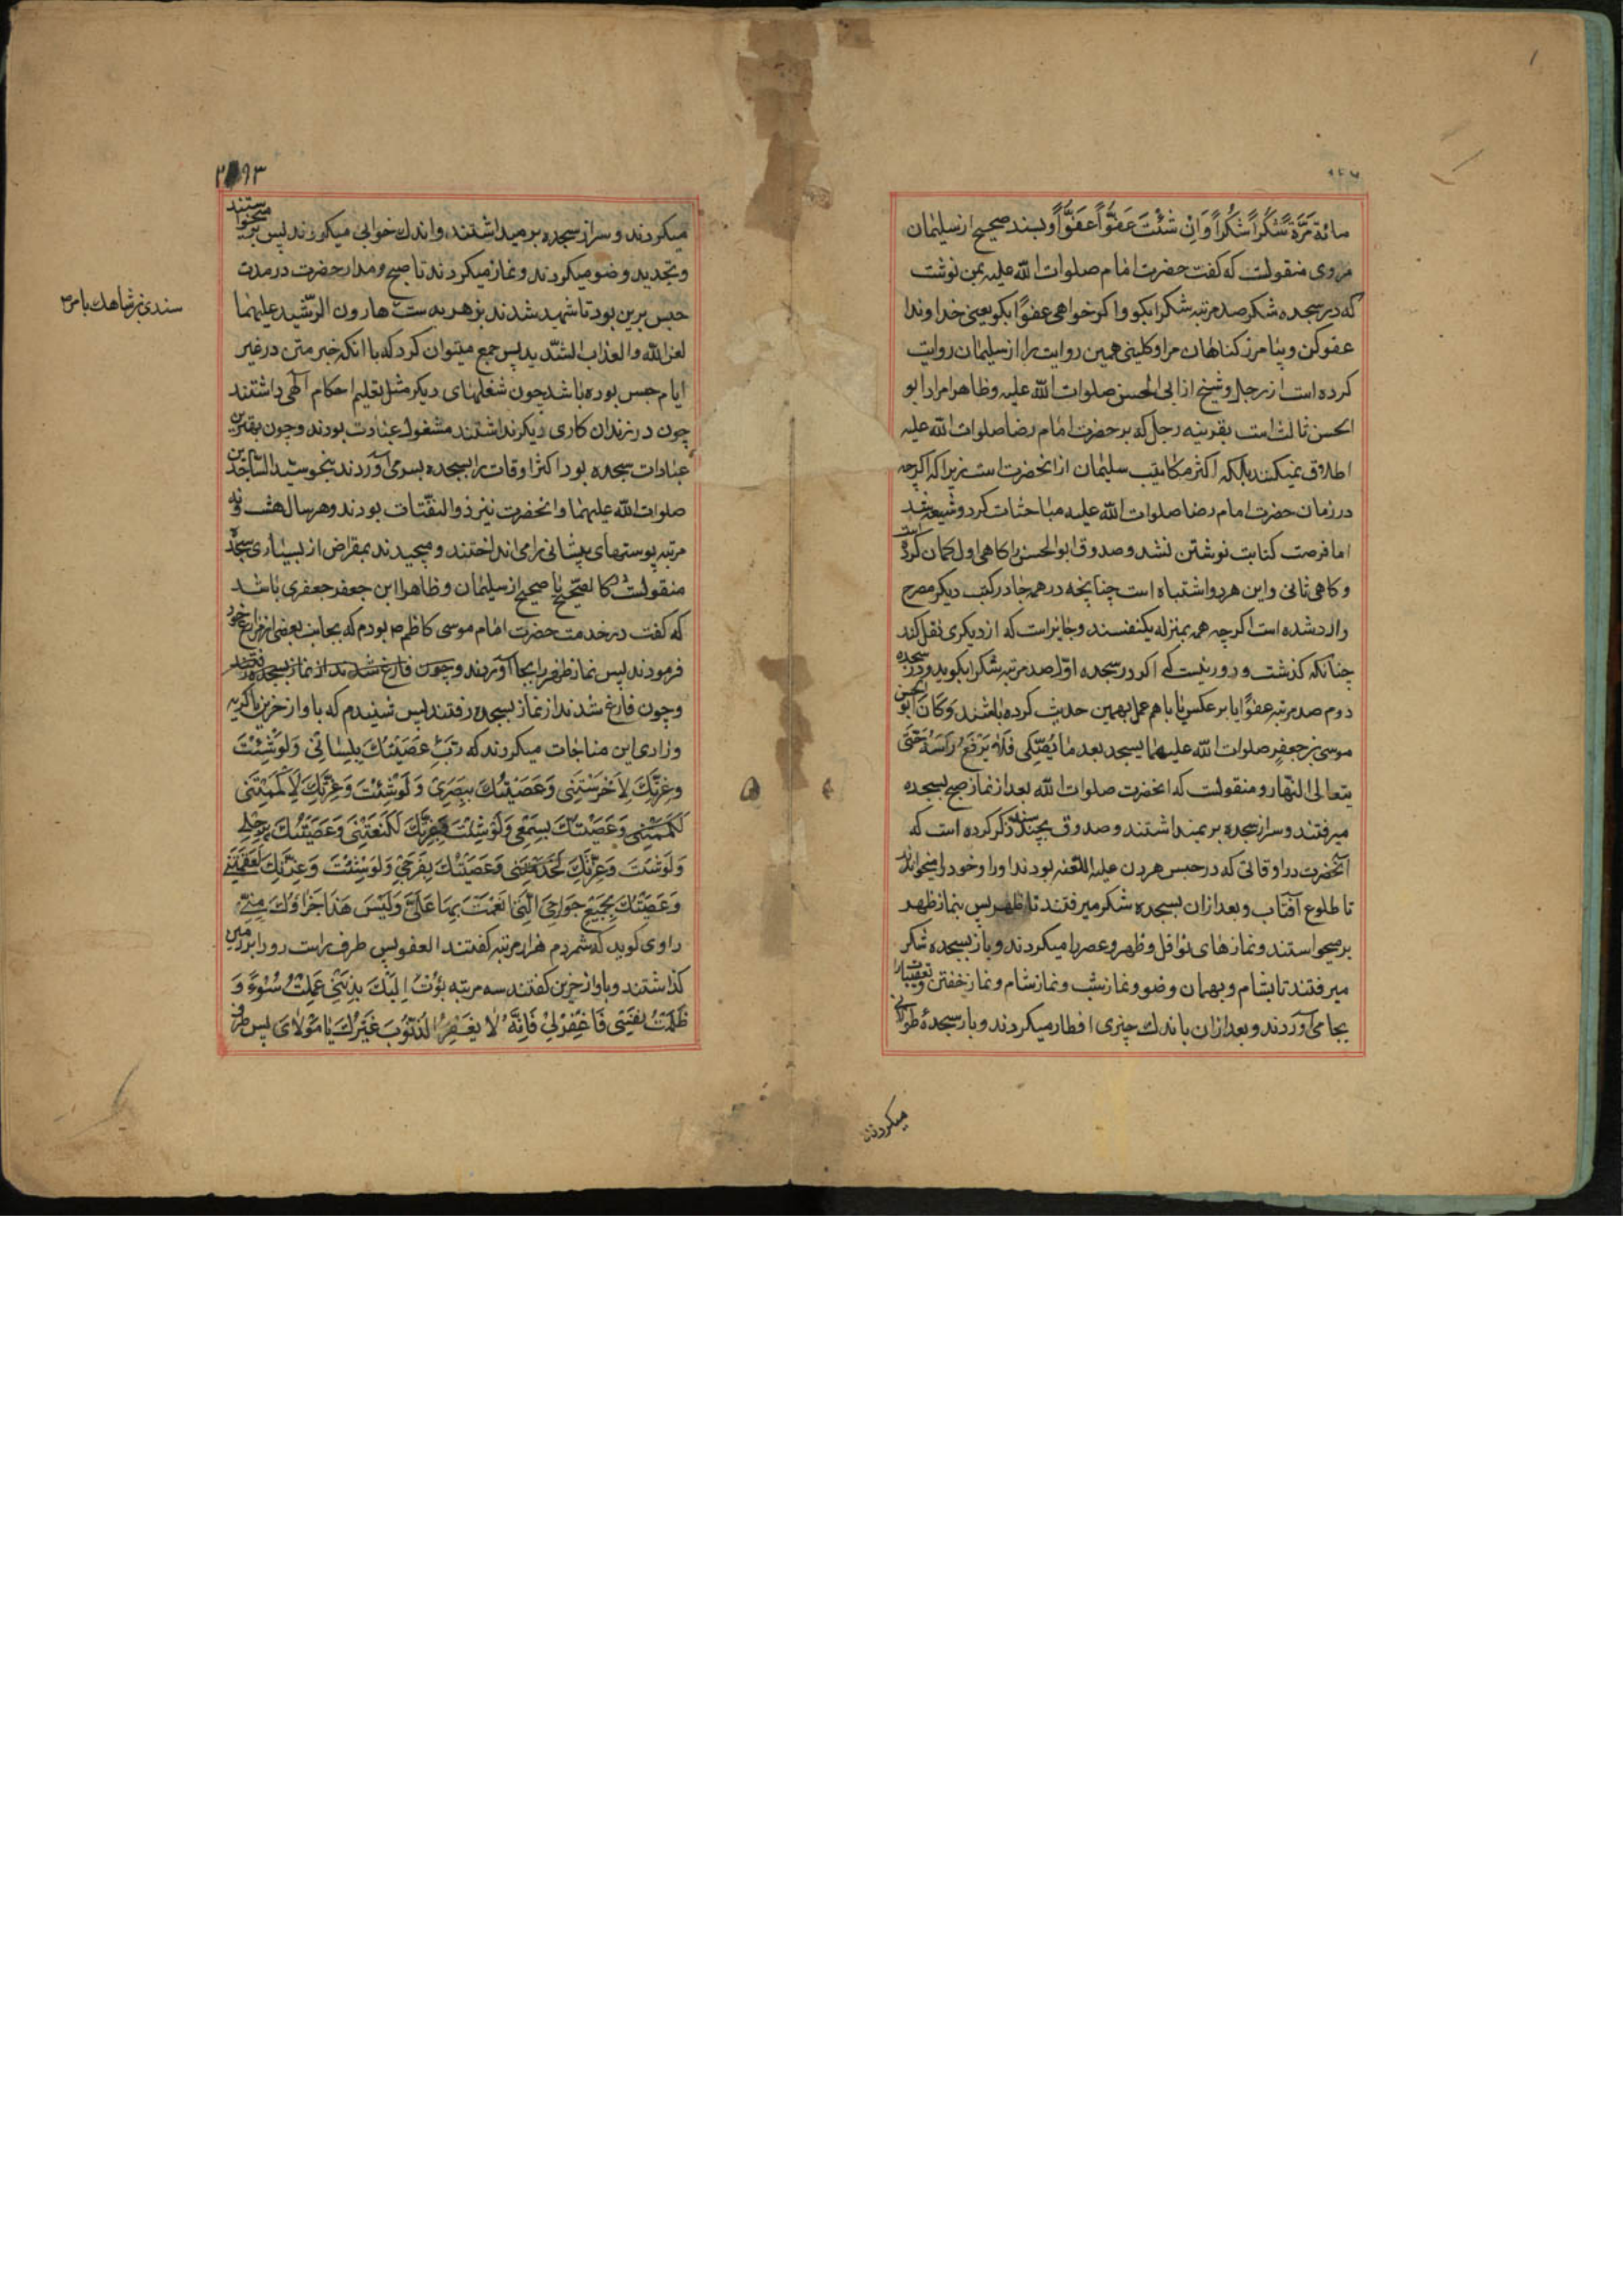 مائة مَرَّة شُكْراً شُكْراً وَاِنْ شِئْتَ عَفْوًاً عَفْوًاً و بسند صحیح از سلیمان
مروی منقولست که گفت حضرت امام صلوات الله علیه بمن نوشت
که در سجده شکر صد مرتبه شکراً بکو و اکر خواهی عفوًا بکو یعنی خداوندا
عفو کن و بیامرز کناهان مرا و کلینی همین روایت را از سلیمان روایت
کرده است از رجل و شیخ از ابی الحسن صلوات الله علیه و ظاهرا مراد ابو
الحسن ثالث است بقرینه رجل که بر حضرت امام رضا صلوات الله علیه
اطلاق نمیکنند بلکه اکثر مکاتیب سلیمان از انحضرت است زیرا که اکرچه
در زمان حضرت امام رضا صلوات الله علیه مباحثات کرد و شیعه شد
اما فرصت کتابت نوشتن نشد و صدوق ابو الحسن را کاهی اول کمان کرده است
و کاهی ثانی و این هر دو اشتباه است چنانچه در همه جا در کتب دیکر مصرح
وارد شده است اکرچه همه بمنزله یکنفسند و جایز است که از دیکری نقل کند
چنانکه کذشت و دور نیست که اکر در سجده اوّل صد مرتبه شکرا بکوید و در سجده
دوم صد مرتبه عفوًا یا بر عکس یا با هم عمل بهمین حدیث کرده باشند وَ کَانَ ابو الحسن
موسی بن جعفر صلوات الله علیهما یسجد بعد ما یُصَلّی فَلَا یَرْفَعُ رَاسَهُ حَتّی
یتعالی النهار و منقولست که انحضرت صلوات الله بعد از نماز صبح بسجده
میرفتند و سر از سجده بر نمیداشتند و صدوق بچند سند ذکر کرده است که
آنحضرت در اوقاتی که در حبس هرون علیه اللعنه بودند اوراد خود را میخواندند
تا طلوع آفتاب و بعد از ان بسجده شکر میرفتند تا ظهر پس بنماز ظهر
بر میخواستند و نمازهای نوافل و ظهر و عصر را میکردند و باز بسجده شکر
میرفتند تا بشام و بهمان وضو و نماز شب و نماز شام و نماز خفتن و تعقیبات را
بجا می‌آوردند و بعد از ان باندك چیزی افطار میکردند و باز سجدهٔ طولانی
میکردند
۲۹۳
میکردند و سر از سجده بر میداشتند و اندك خوابی میکردند پس بر میخواستند
و تجدید وضو میکردند و نماز میکردند تا صبح و مدار حضرت در مدت
حبس برین بود تا شهید شدند بزهر بدست هارون الرّشید علیهما
سندی بن شاهك بامر
لعن الله و العذاب الشّدید پس جمع میتوان کرد که با انکه خبر متن در غیر
ایام حبس بوده باشد چون شغلهای دیکر مثل تعلیم احکام الهی داشتند
چون در زندان کاری دیکر نداشتند مشغول عبادت بودند و چون بهترین
عبادات سجده بود اکثر اوقات را بسجده بسر می‌آوردند بنحو سید السّاجدین
صلوات الله علیهما و انحضرت نیز ذو الثفنات بودند و هر سال هشت و نه
مرتبه پوستهای پیشانی را می انداختند و میچیدند بمقراض از بسیاری سجده
منقولست کا لصّحیح یا صحیح از سلیمان و ظاهرا ابن جعفر جعفری باشد
که گفت در خدمت حضرت امام موسی کاظم بودم که بجانب بعضی از مزارع خود
فرمودند پس نماز ظهر را بجا آوردند و چون فارغ شدند از نماز بسجده رفتند
و چون فارغ شدند از نماز بسجده رفتند پس شنیدم که با واز حزین با کریه
و زاری این مناجات میکردند که رَبِّ عَصَیْتُكَ بِلِسَانِی وَلَوْ شِئْتَ
وَعِزَّتِكَ لَاَخْرَسْتَنِی وَعَصَیْتُكَ بِبَصَرِی وَلَوْ شِئْتَ وَعِزَّتِكَ لَاَکْمَهْتَنِی
وَعَصَیْتُكَ بِسَمْعِی وَلَوْ شِئْتَ وَعِزَّتِكَ لَکَنَعْتَنِی وَعَصَیْتُكَ بِرِجْلِی
وَلَوْ شِئْتَ وَعِزَّتِكَ لَجَذَمْتَنِی وَعَصَیْتُكَ بِفَرْجِی وَلَوْ شِئْتَ وَعِزَّتِكَ لَعَقَمْتَنِی
وَعَصَیْتُكَ بِجَمِیعِ جَوَارِحِیَ الَّتِی اَنْعَمْتَ بِهَا عَلَیَّ وَلَیْسَ هَذَا جَزَاؤُكَ مِنِّی
راوی کوید که شمردم هزار مرتبه گفتند العفو پس طرف راست رو را بر زمین
کذاشتند و با واز حزین گفتند سه مرتبه بُؤْتُ اِلَیْكَ بِذَنْبِی عَمِلْتُ سُوْءً وَ
ظَلَمْتُ نَفْسِی فَاغْفِرْلِی فَاِنَّهُ لَا یَغْفِرُ الذُّنُوبَ غَیْرُكَ یَا مَوْلَایَ پس طرف